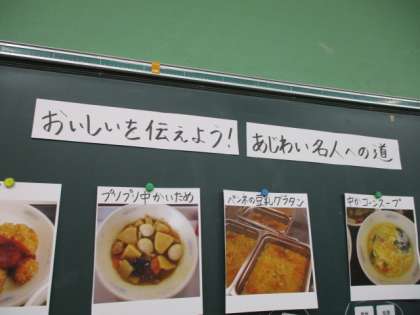 おいしいを伝えよう！
あじわい名人への道
プリプリ中かいため
パンネの豆乳グラタン
中かコーンスープ